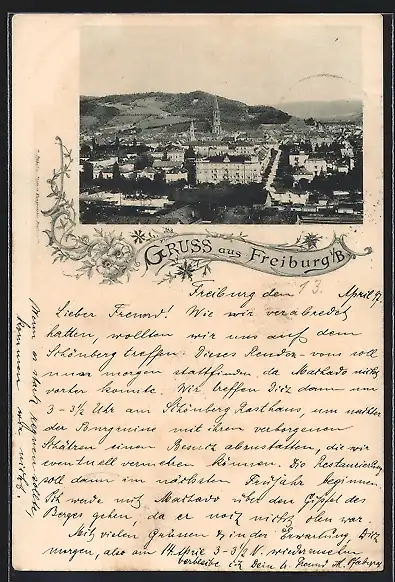 GRUSS aus Freiburg i/B.
Freiburg den 13. April 97.
Lieber Freund! Wie wir verabredet
hatten, wollten wir uns auf dem
Schönberg treffen. Dieses Rendez-vous soll
nun morgen stattfinden, da Machado nicht
vorher konnte. Wir treffen Dich dann um
3-3½ Uhr am Schönberg Rasthaus, um nachher
der Burgruine mit ihren verborgenen
Schätzen einen Besuch abzustatten, die wir
eventuell vermehren können. Die Restaurierung
soll dann im nächsten Frühjahr beginnen.
Ich werde mit Machado über den Gipfel des
Berges gehen, da er noch nicht oben war.
Mit vielen Grüssen & in der Erwartung, Dich
morgen, also am 14. April 3-3½ N. wiederzusehen
verbleibe ich Dein tr. Freund H.
Wenn es stark regnen sollte,
kommen wir nicht.